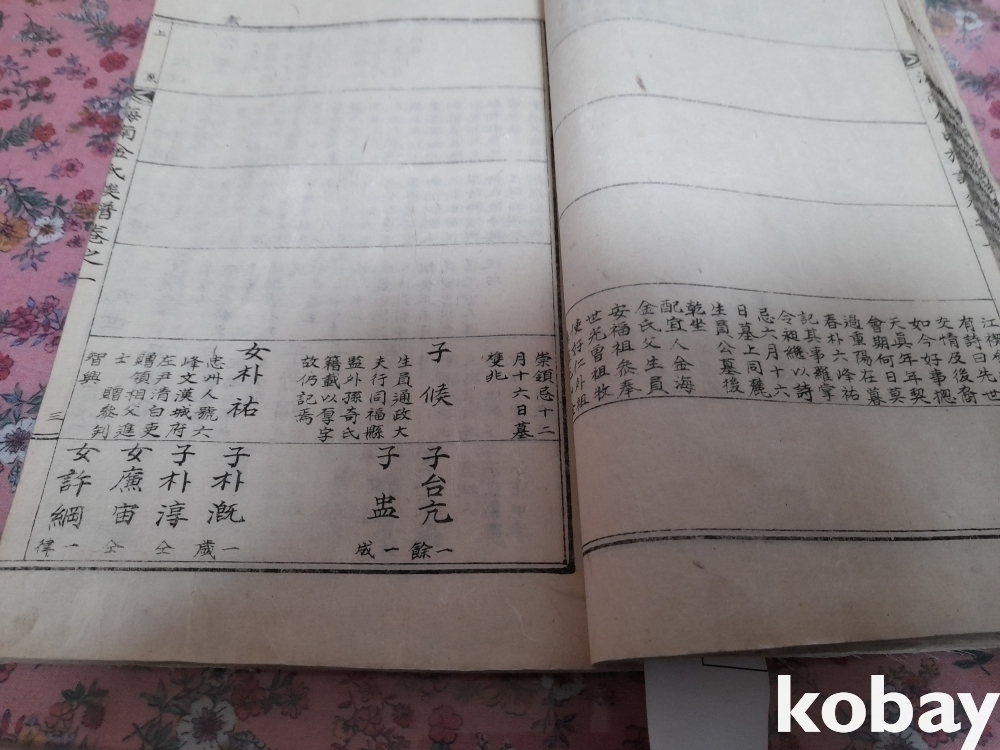 江
有詩曰先世
交情及後裔
如今好事摠
天眞年年契
會期何日莫
過重陽在暮
春朴六峰祐
記其事難掌
令祖繼以詩
忌六月十六
日墓上同麓
生員公墓後
乾坐
配宜人金海
金氏父生員
安福祖叅奉
世光曾祖牧
崇鎭忌十二
月十六日墓
雙兆
子 候
生員通政大
夫行同福縣
監外孫奇氏
籍載以厚字
故仍記焉
女朴祐
忠州人號六
峰文漢城府
左尹清白吏
贈領相父進
士 贈叅判
智興
子台亢
一餘
子 蛊
一咸
子朴漑
一歲
子朴淳
仝
女㢘宙
仝
女許綱
一律
海南金氏雙譜卷之一
三
上
辰
kobay